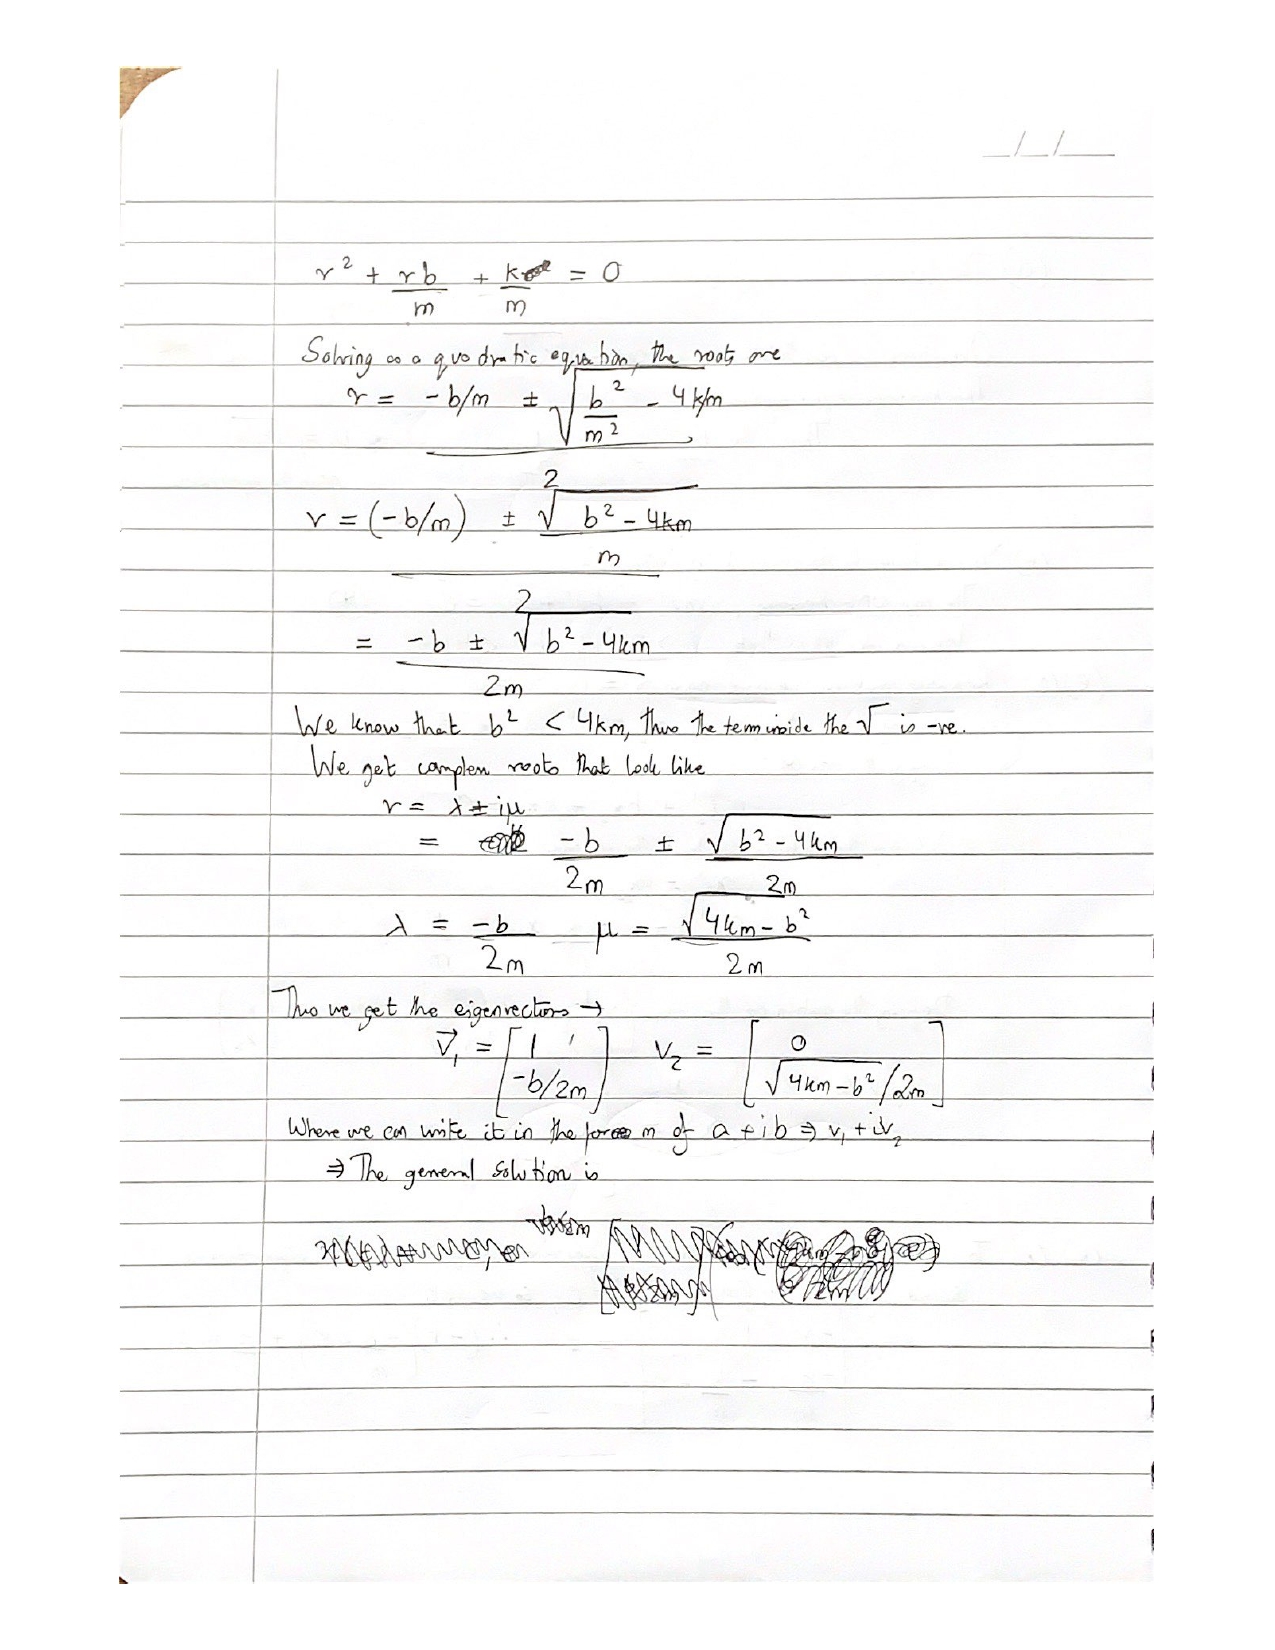 __/__/____
r² + rb/m + k/m = 0
Solving as a quadratic equation, the roots are
r = (-b/m ± √(b²/m² - 4k/m))/2
r = ((-b/m) ± √(b² - 4km)/m)/2
= (-b ± √(b² - 4km))/2m
We know that b² < 4km, thus the term inside the √ is -ve.
We get complex roots that look like
r = λ ± iμ
= -b/2m ± √(b² - 4km)/2m
λ = -b/2m μ = √(4km - b²)/2m
Thus we get the eigenvectors →
v⃗₁ = [1 -b/2m] v₂ = [0 √(4km-b²)/2m]
Where we can write it in the form of a + ib ⇒ v₁ + iv₂
⇒ The general solution is